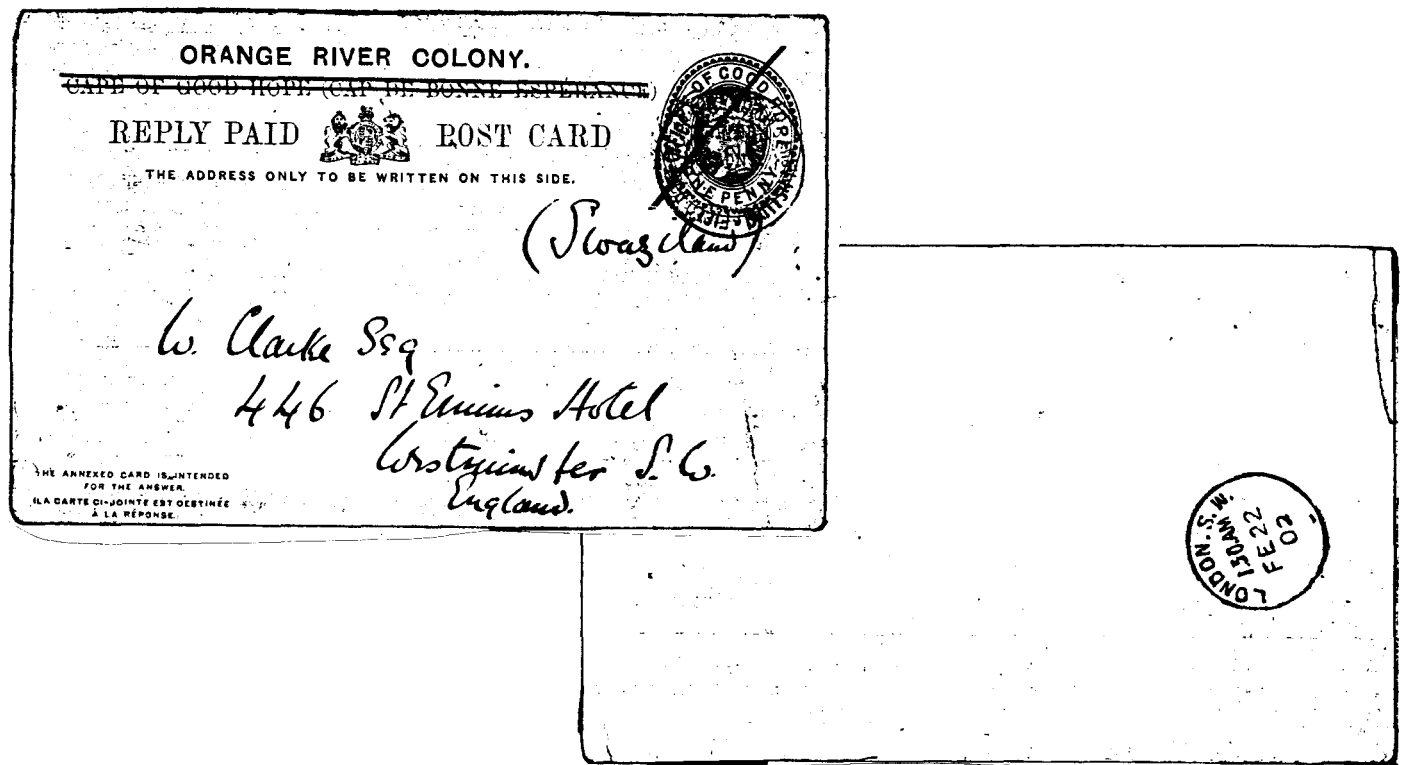 ORANGE RIVER COLONY.
CAPE OF GOOD HOPE (CAP DE BONNE ESPERANCE)
REPLY PAID POST CARD
THE ADDRESS ONLY TO BE WRITTEN ON THIS SIDE.
OF GOOD HOPE
ONE PENNY
(Swaziland)
W. Clarke Esq
446 St Ermins Hotel
Westminster S. W.
England.
THE ANNEXED CARD IS INTENDED
FOR THE ANSWER.
(LA CARTE CI-JOINTE EST DESTINÉE
À LA RÉPONSE.
LONDON. S. W.
1 30 AM
FE 22
02